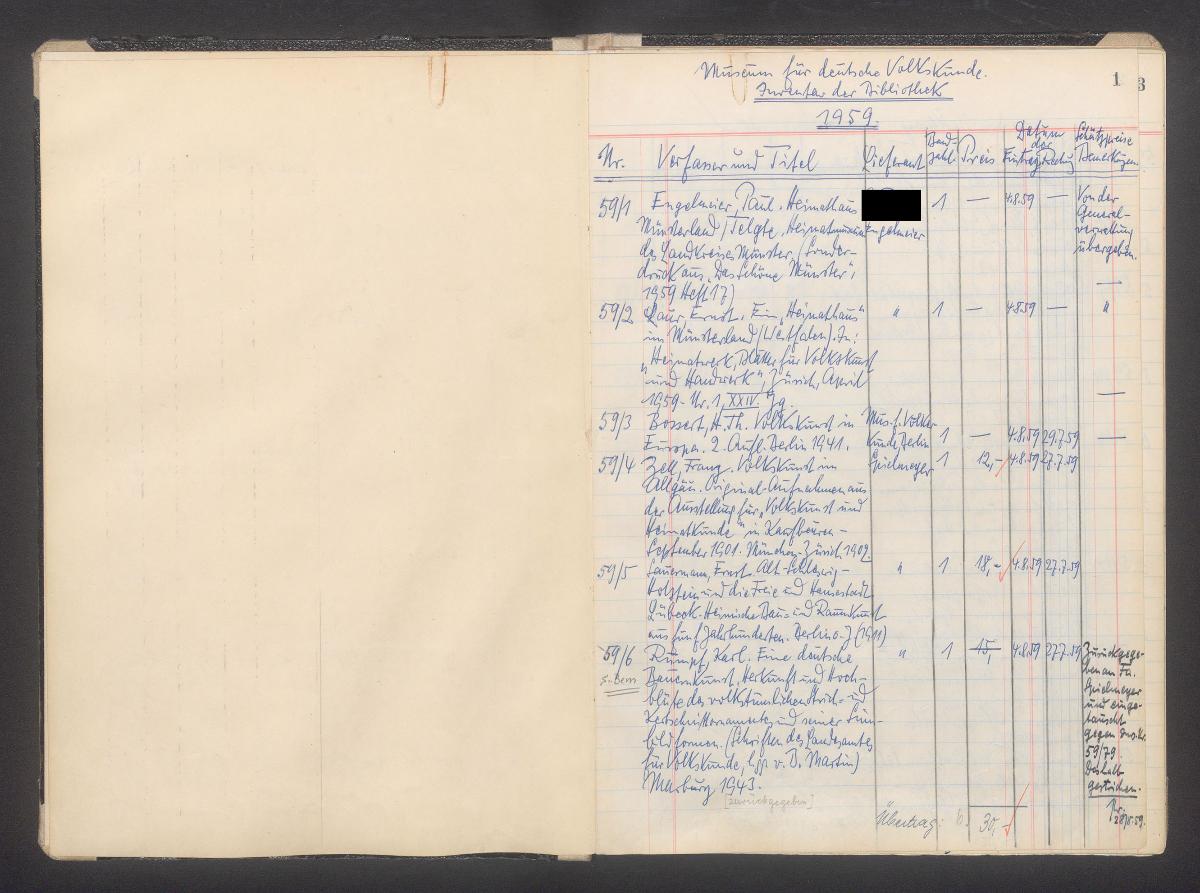 Museum für deutsche Volkskunde.
Inventar der Bibliothek
1959.
1 3
Nr. Verfasser und Titel Lieferant Band-zahl Preis Datum der Eintrag Rechng Schätzpreise Bemerkungen
59/1 Engelmeier, Paul. Heimathaus 1 — 4.8.59 — Von der
Münsterland/Telgte. Heimatmuseum Engelmeier General-
des Landkreises Münster. (Sonder- verwaltung
druck aus „Das Schöne Münster", übergeben.
1959 Heft 17) —
59/2 Laur, Ernst. Ein „Heimathaus" " 1 — 4.8.59 — "
im Münsterland (Westfalen). In:
„Heimatwerk, Blätter für Volkskunst
und Handwerk", Zürich, April
1959. Nr. 1, XXIV. Jg. —
59/3 Bossert, H. Th. Volkskunst in Mus. f. Völker-
Europa. 2. Aufl. Berlin 1941. kunde, Berlin 1 — 4.8.59 29.7.59 —
59/4 Zell, Franz. Volkskunst im Spielmeyer 1 12,- 4.8.59 27.7.59
Allgäu. Original-Aufnahmen aus
der Ausstellung für „Volkskunst und
Heimatkunde" in Kaufbeuren -
September 1901. München-Zürich 1902.
59/5 Sauermann, Ernst. Alt-Schleswig- " 1 18,- 4.8.59 27.7.59
Holstein und die Freie und Hansestadt
Lübeck. Heimische Bau- und Raumkunst
aus fünf Jahrhunderten. Berlin o. J (1911)
59/6 Rumpf, Karl. Eine deutsche " 1 15,- 4.8.59 27.7.59 Zurückgege-
s. Bem Bauernkunst, Herkunft und Hoch- ben an Fa.
blüte des volkstümlichen Strich- und Spielmeyer
Kerbschnittornamentes und seiner Sinn- und einge-
bildformen. (Schriften des Landesamtes tauscht
für Volkskunde, hg. v. B. Martin) gegen Inv.Nr.
Marburg 1943. 59/79.
[zurückgegeben] Deshalb
gestrichen.
Übertrag: 30,-